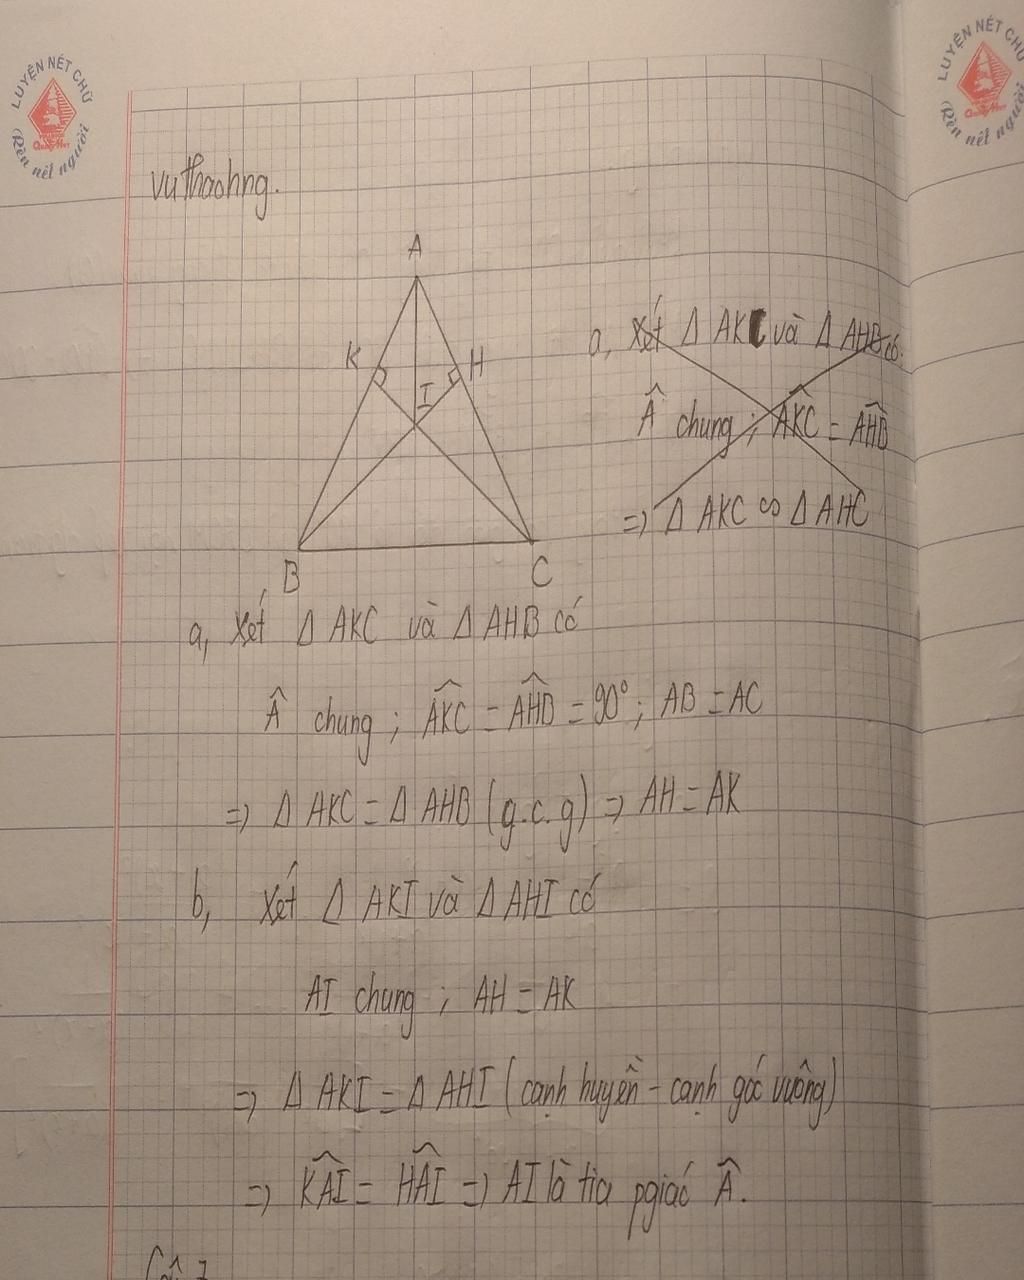 LUYỆN NÉT CHỮ
Quang Huy
Rèn nết người
LUYỆN NÉT CHỮ
Rèn nết người
vuthaohng.
A
K
H
I
B
C
a, Xét Δ AKC và Δ AHB có.
Â chung ; \widehat{AKC} = \widehat{AHB}
=> Δ AKC ∽ Δ AHC
a, Xét Δ AKC và Δ AHB có
Â chung ; \widehat{AKC} = \widehat{AHB} = 90° ; AB = AC
=> Δ AKC = Δ AHB (g.c.g) => AH = AK
b, Xét Δ AKI và Δ AHI có
AI chung ; AH = AK
=> Δ AKI = Δ AHI (cạnh huyền - cạnh góc vuông)
=> \widehat{KAI} = \widehat{HAI} => AI là tia pgiác Â.